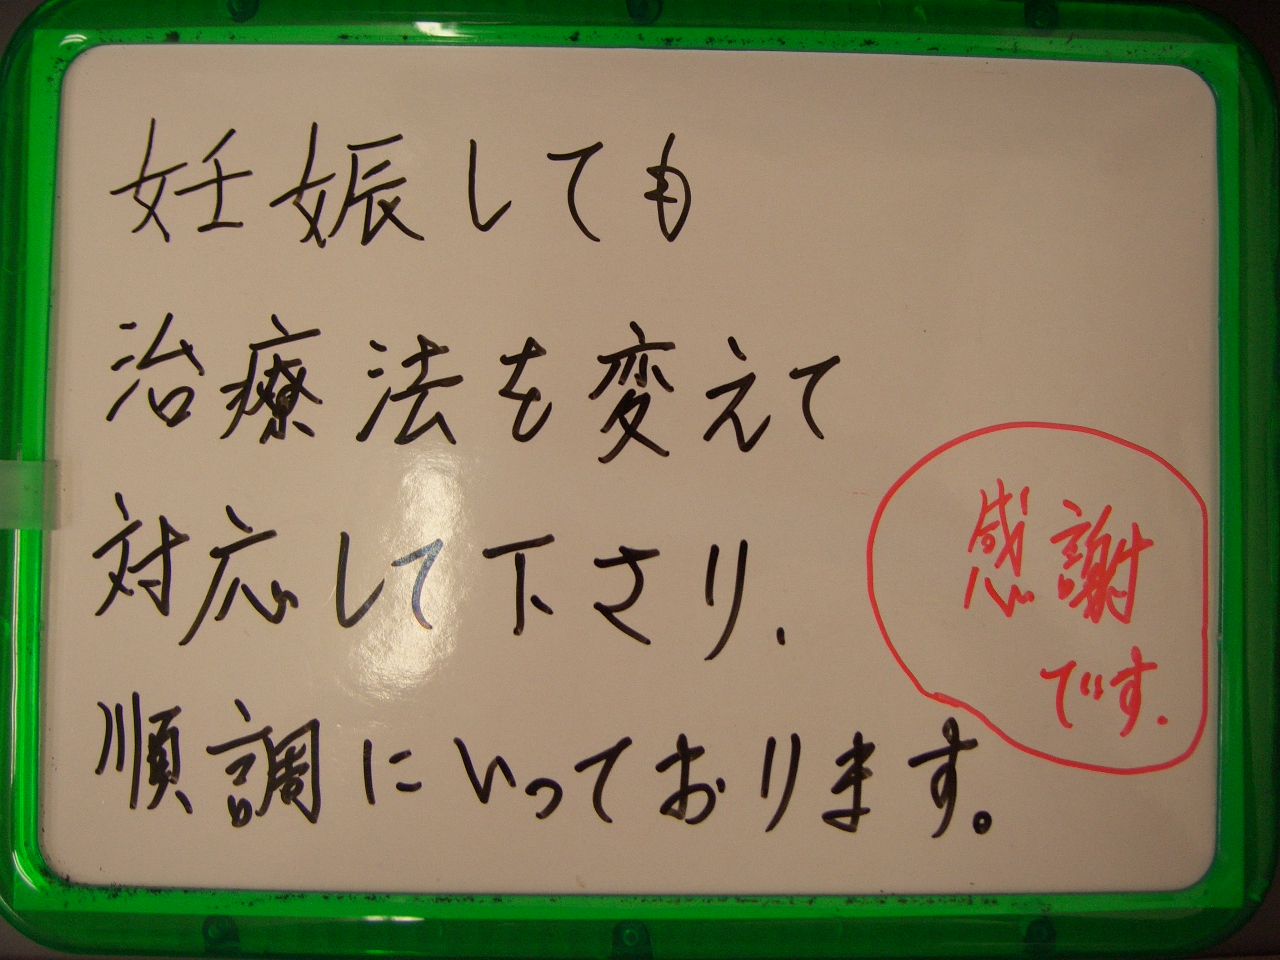 妊娠しても
治療法を変えて
対応して下さり.
順調にいっております。
感謝
です.